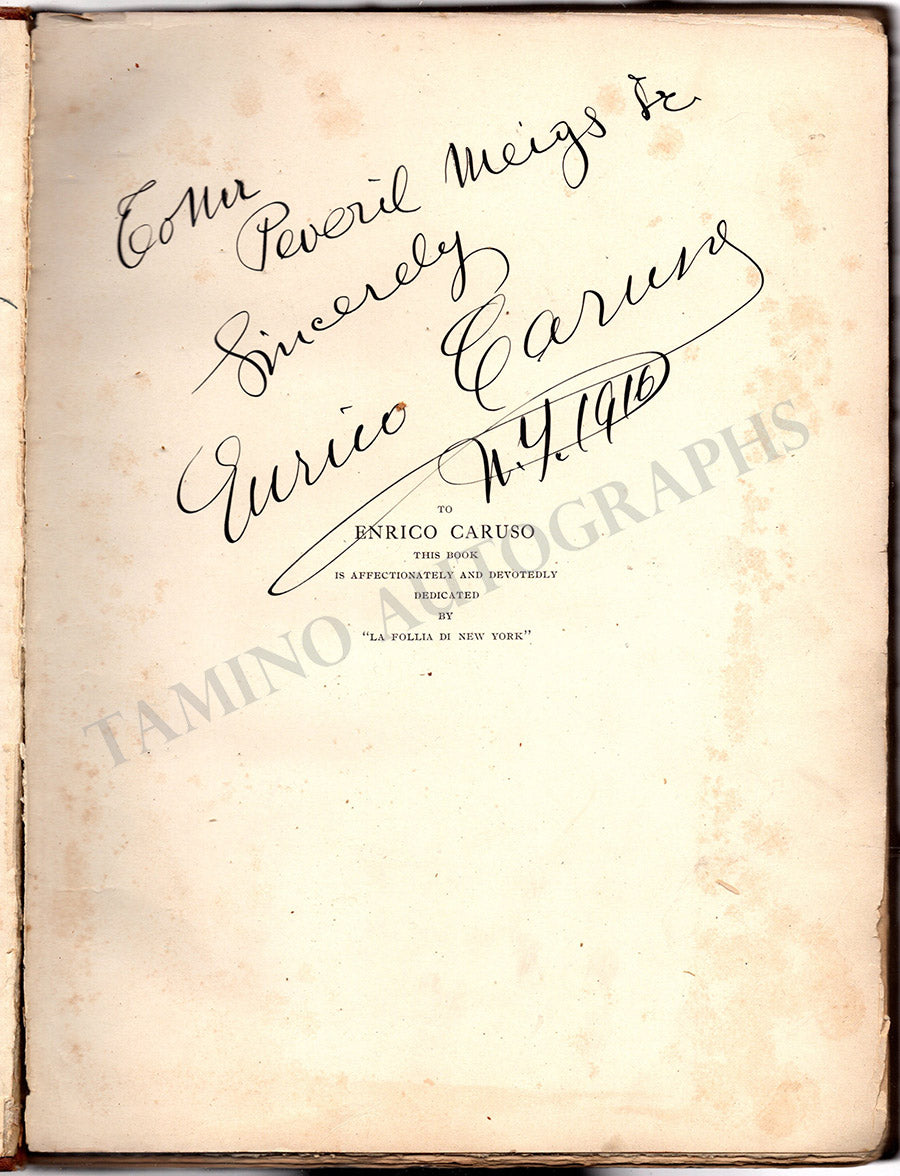 To Mr
Peveril Meigs Jr.
Sincerely
Enrico Caruso
N.Y. 1916
TO
ENRICO CARUSO
THIS BOOK
IS AFFECTIONATELY AND DEVOTEDLY
DEDICATED
BY
"LA FOLLIA DI NEW YORK"
TAMINO AUTOGRAPHS